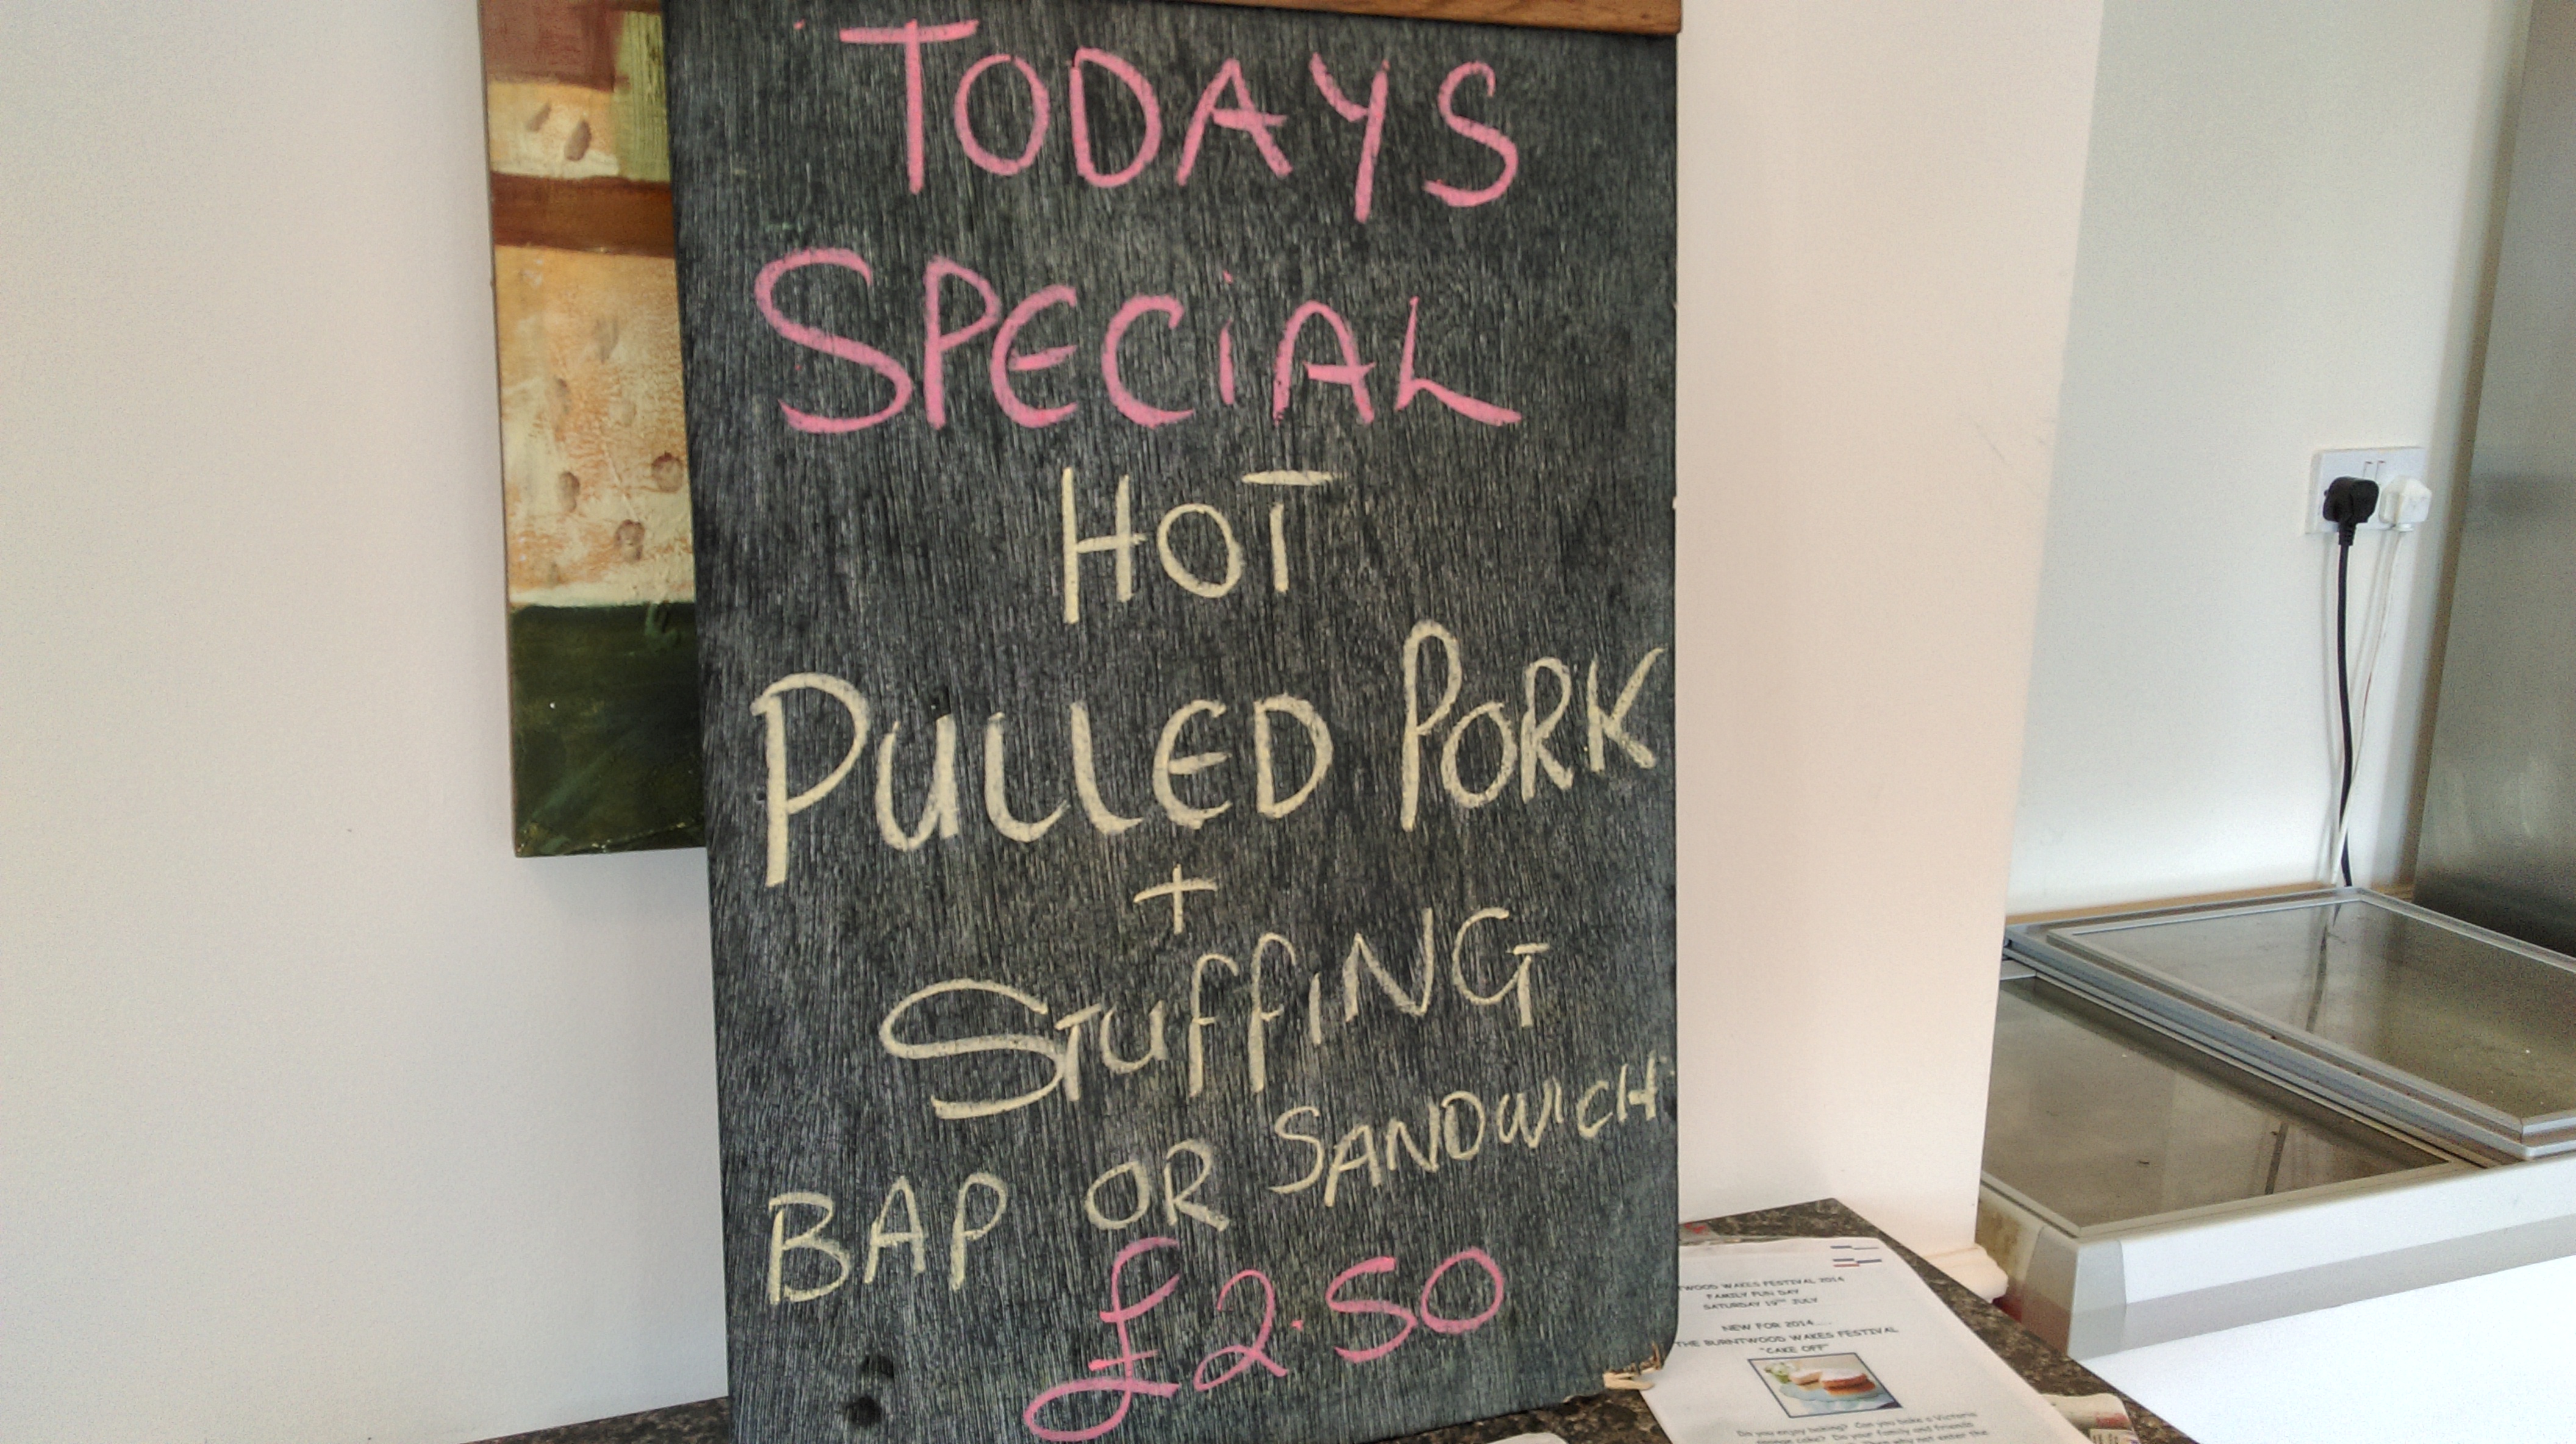 TODAYS
SPECiAL
HOT
PULLED PORK
+
STUFFiNG
BAP OR SANDWICH
£2.50
TWOOD WAKES FESTIVAL 2014
FAMILY FUN DAY
SATURDAY 19TH JULY
NEW FOR 2014.....
THE BURNTWOOD WAKES FESTIVAL
"CAKE OFF"
Do you enjoy baking? Can you bake a Victoria
sponge cake? Do your family and friends
Then why not enter the